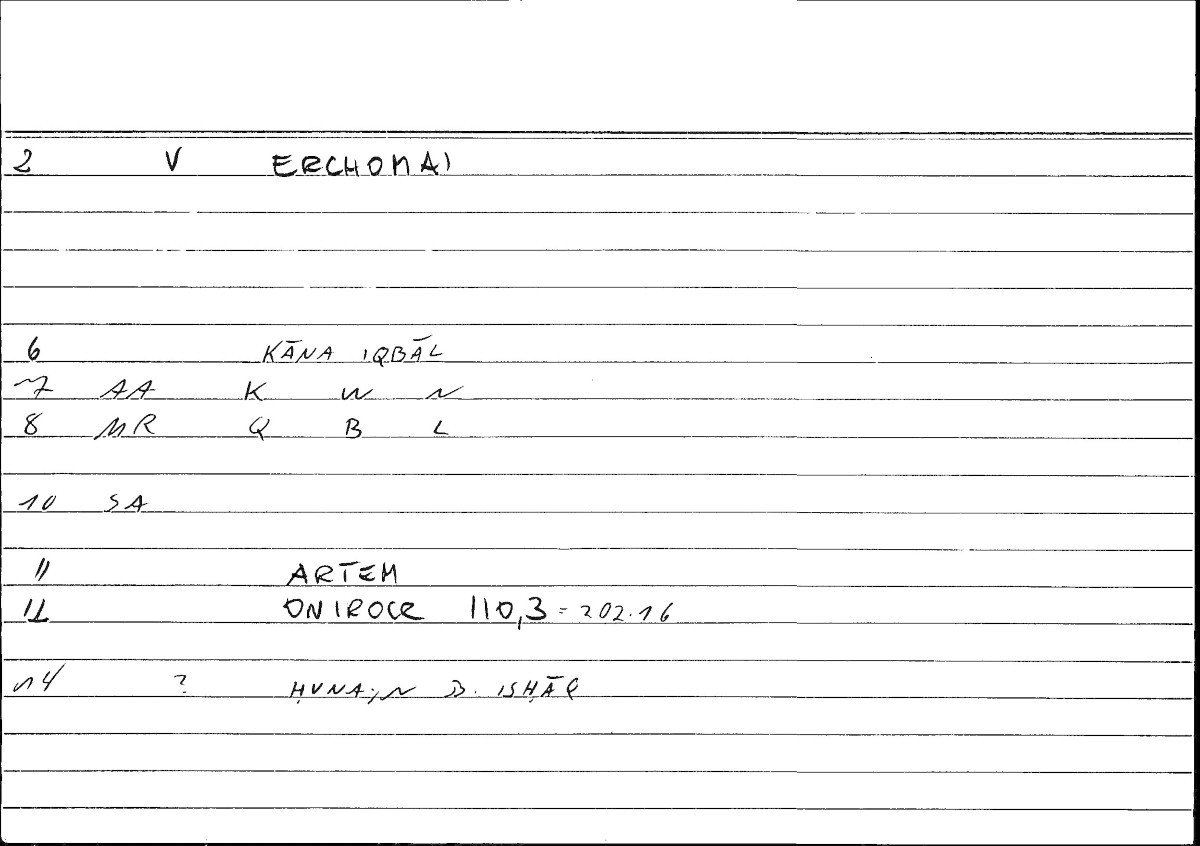 2 V ERCHOMAI
6 KĀNA IQBĀL
7 AA K W N
8 MR Q B L
10 SA
11 ARTEM
12 ONIROCR 110,3 = 202.16
14 ? ḤUNAIN B. ISḤĀQ